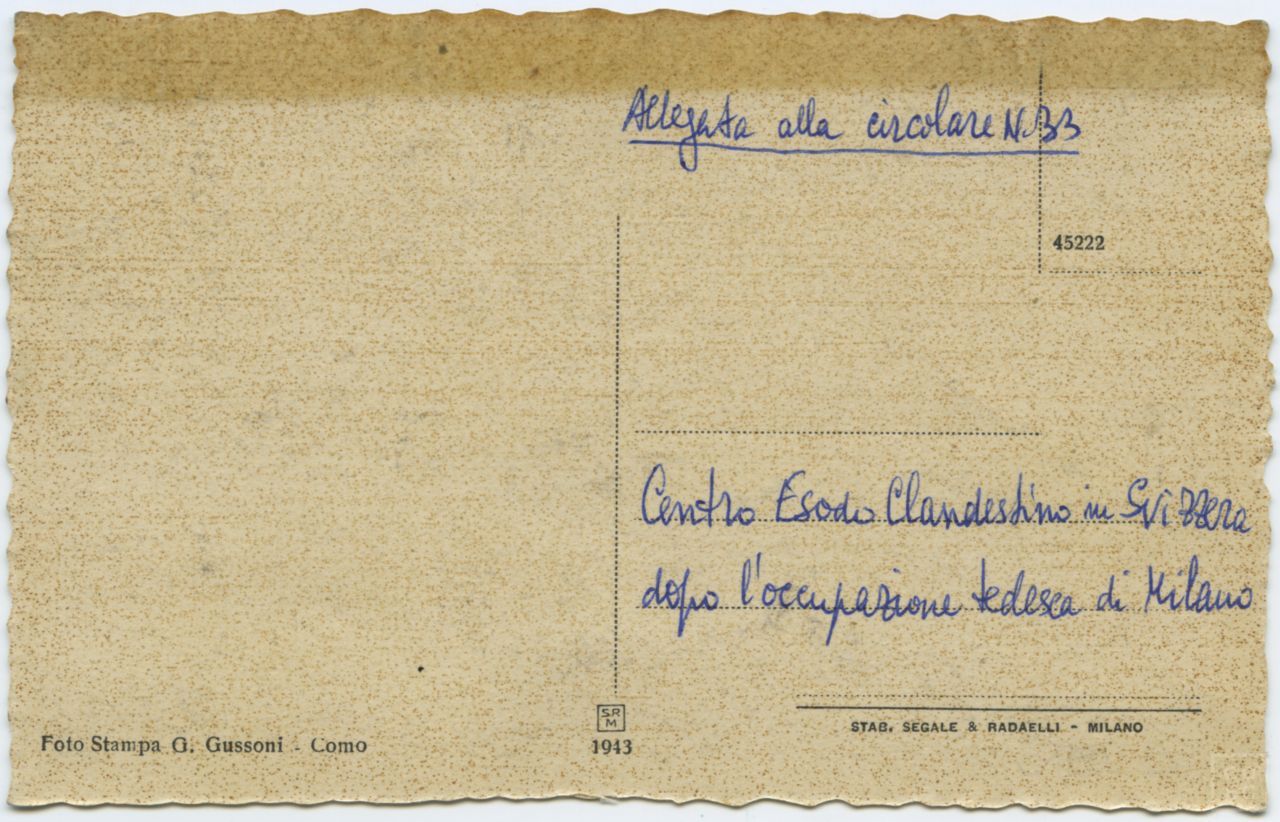 Allegata alla circolare N.33
45222
Centro Esodo Clandestino in Svizzera
dopo l'occupazione tedesca di Milano
SR
M
STAB. SEGALE & RADAELLI - MILANO
Foto Stampa G. Gussoni - Como
1943